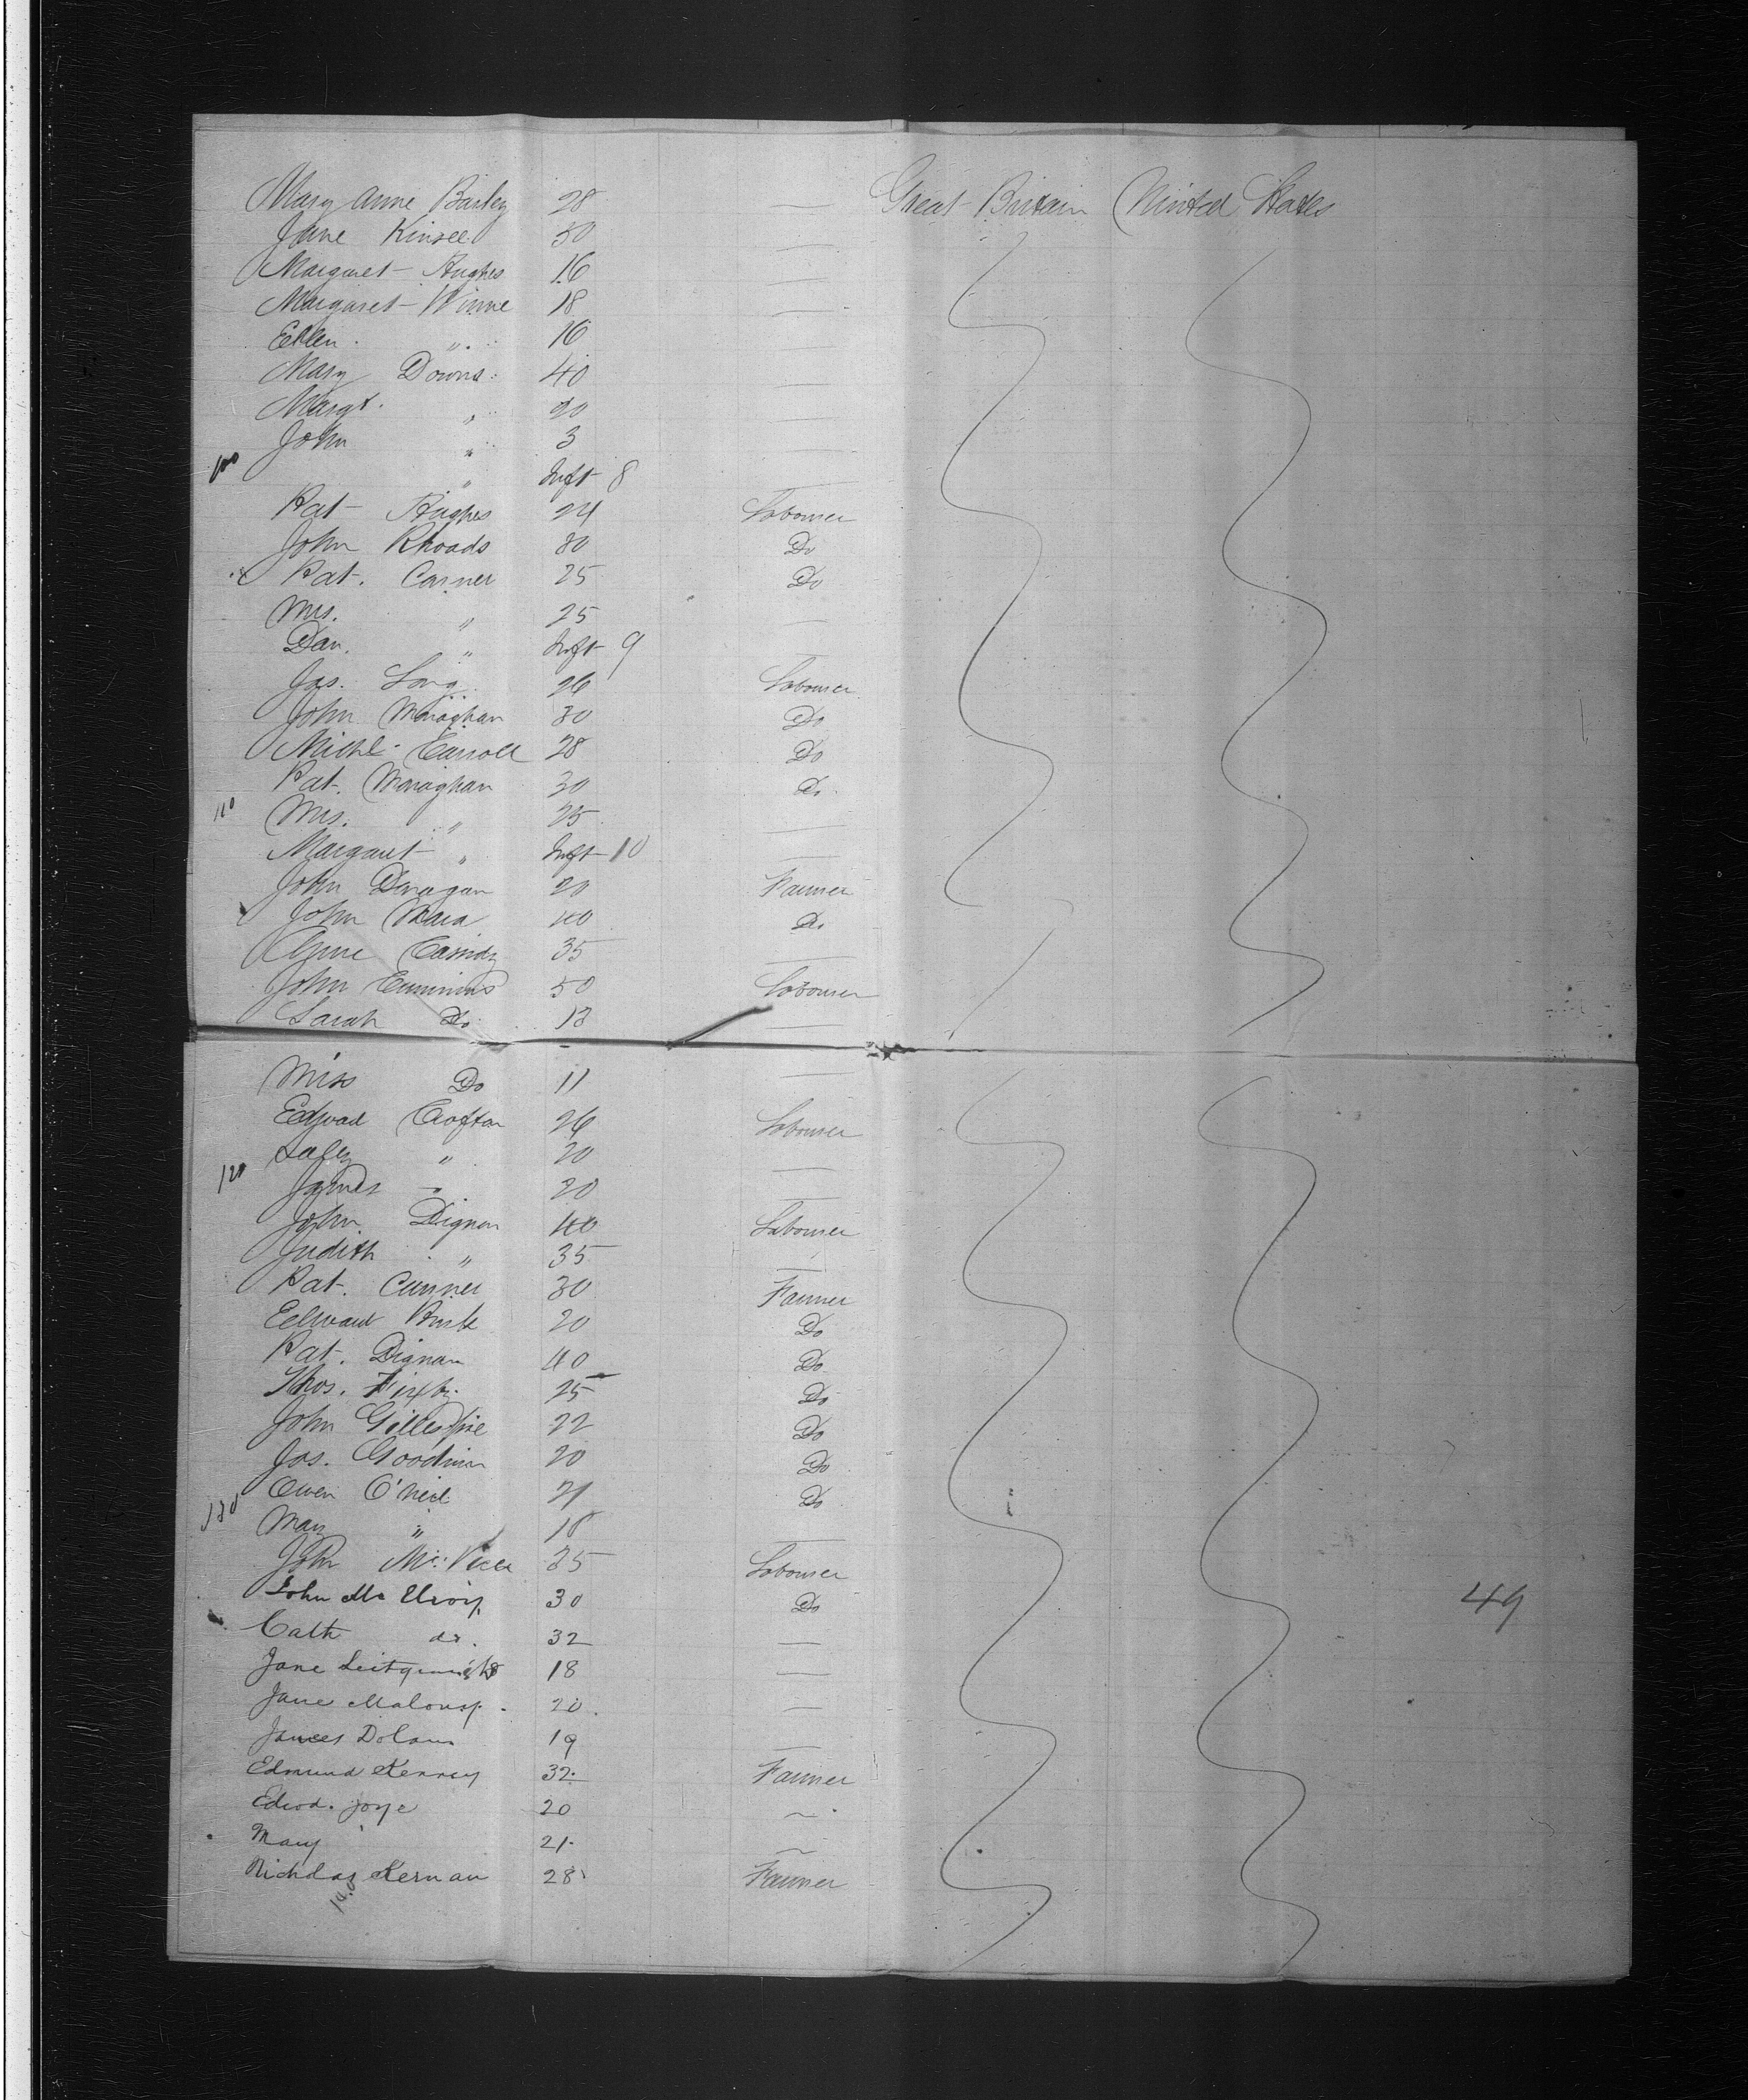 Mary Anne Barley 28 — Great Britain United States
Jane Kinsee 50 —
Margaret Hughes 16 —
Margaret Winne 18 —
Ellen " 16 —
Mary Downs 40 —
Margt. " 20 —
John " 3 —
100 " Inft 8 —
Pat Hughes 24 Labourer
John Rhoads 30 Do
Pat. Carner 25 Do
Mrs. " 25 —
Dan. " Inft 9 —
Jas. Long 26 Labourer
John Monaghan 30 Do
Michl. Carroll 28 Do
Pat. Monaghan 30 Do
110 Mrs. " 25 —
Margaret " Inft 10 —
John Donagan 20 Farmer
John Mara 40 Do
Anne Cassidy 35 —
John Cummins 50 Labourer
Sarah Do 13 —
Miss Do 11 —
Edward Crofton 26 Labourer
" 20 —
120 James " 20 —
John Dignan 40 Labourer
Judith " 35 —
Pat. Cunner 30 Farmer
Edward 20 Do
Pat. Dignan 40 Do
Thos. 25 Do
John Gillespie 22 Do
Jas. Goodwin 20 Do
Owen O'Neil 21 Do
130 Mary " 18 —
John 35 Labourer
John Mc Elroy 30 Do 49
Cath do. 32 —
Jane 18 —
Jane Malony 20. —
James Dolan 19 —
Edmund Kenney 32. Farmer
Edwd. Joye 20 ~
Mary " 21. ~
Nicholas Kernan 28 Farmer
140